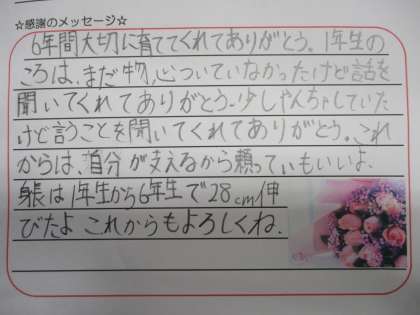 ☆感謝のメッセージ☆
6年間大切に育ててくれてありがとう。1年生の
ころは、まだ物心ついていなかったけど話を
聞いてくれてありがとう。少しやんちゃしていた
けど言うことを聞いてくれてありがとう。これ
からは、自分が支えるから頼っていもいいよ。
身長は1年生から6年生で28cm伸
びたよ これからもよろしくね.